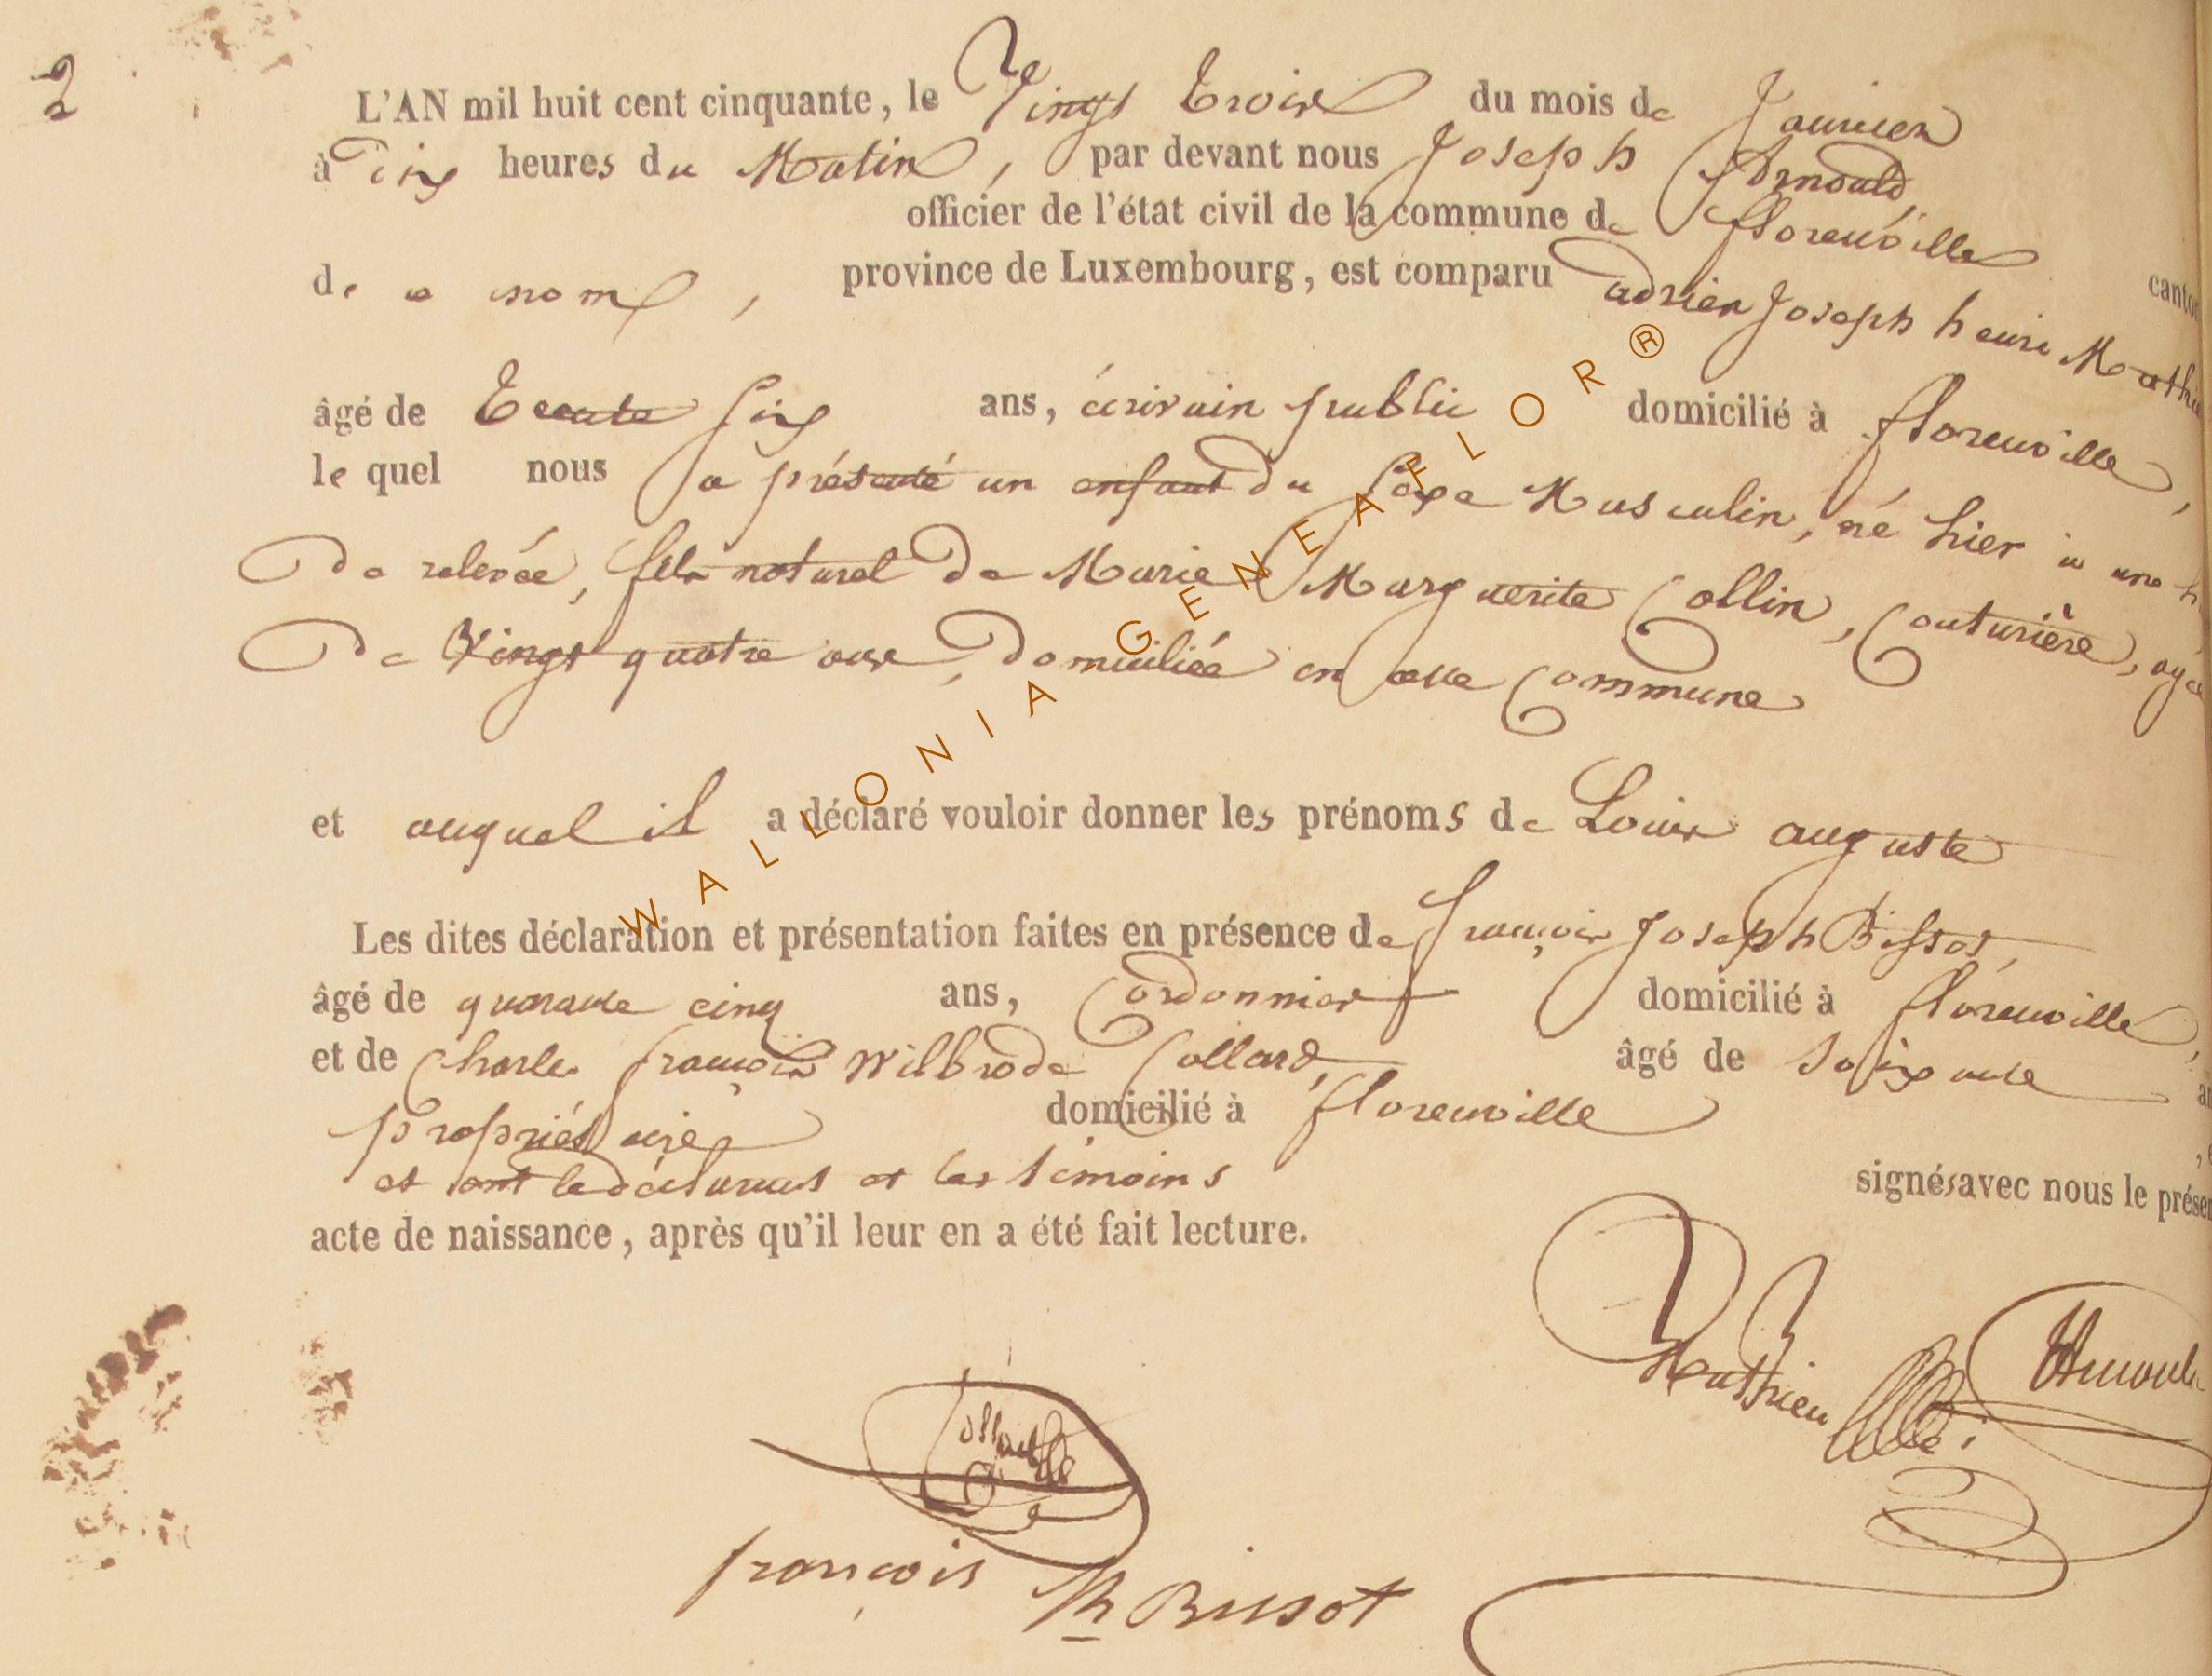 2
L'AN mil huit cent cinquante, le Vingt Trois du mois de Janvier
à Dix heures du Matin, par devant nous Joseph Arnould,
officier de l'état civil de la commune de florenville canto
de ce nom, province de Luxembourg, est comparu adrien Joseph henri Mathie
âgé de Trente six ans, écrivain public domicilié à florenville,
le quel nous a présenté un enfant du sexe Masculin, né hier à une h
De relevée, fils naturel De Marie Marguerite Collin, Couturière, agée
De Vingt quatre ans, Domiciliée en cette Commune
et auquel il a déclaré vouloir donner les prénoms de Louis auguste
Les dites déclaration et présentation faites en présence de françois Joseph Bissot,
âgé de quarante cinq ans, Cordonnier domicilié à florenville,
et de Charles françois Wilbrode Collard, âgé de soixante a
propriétaire domicilié à florenville
et ont le déclarant et les témoins signés avec nous le présen
acte de naissance, après qu'il leur en a été fait lecture.
Mathieu
Collard
françois Bissot
WALLONIA GENEAFLOR ®